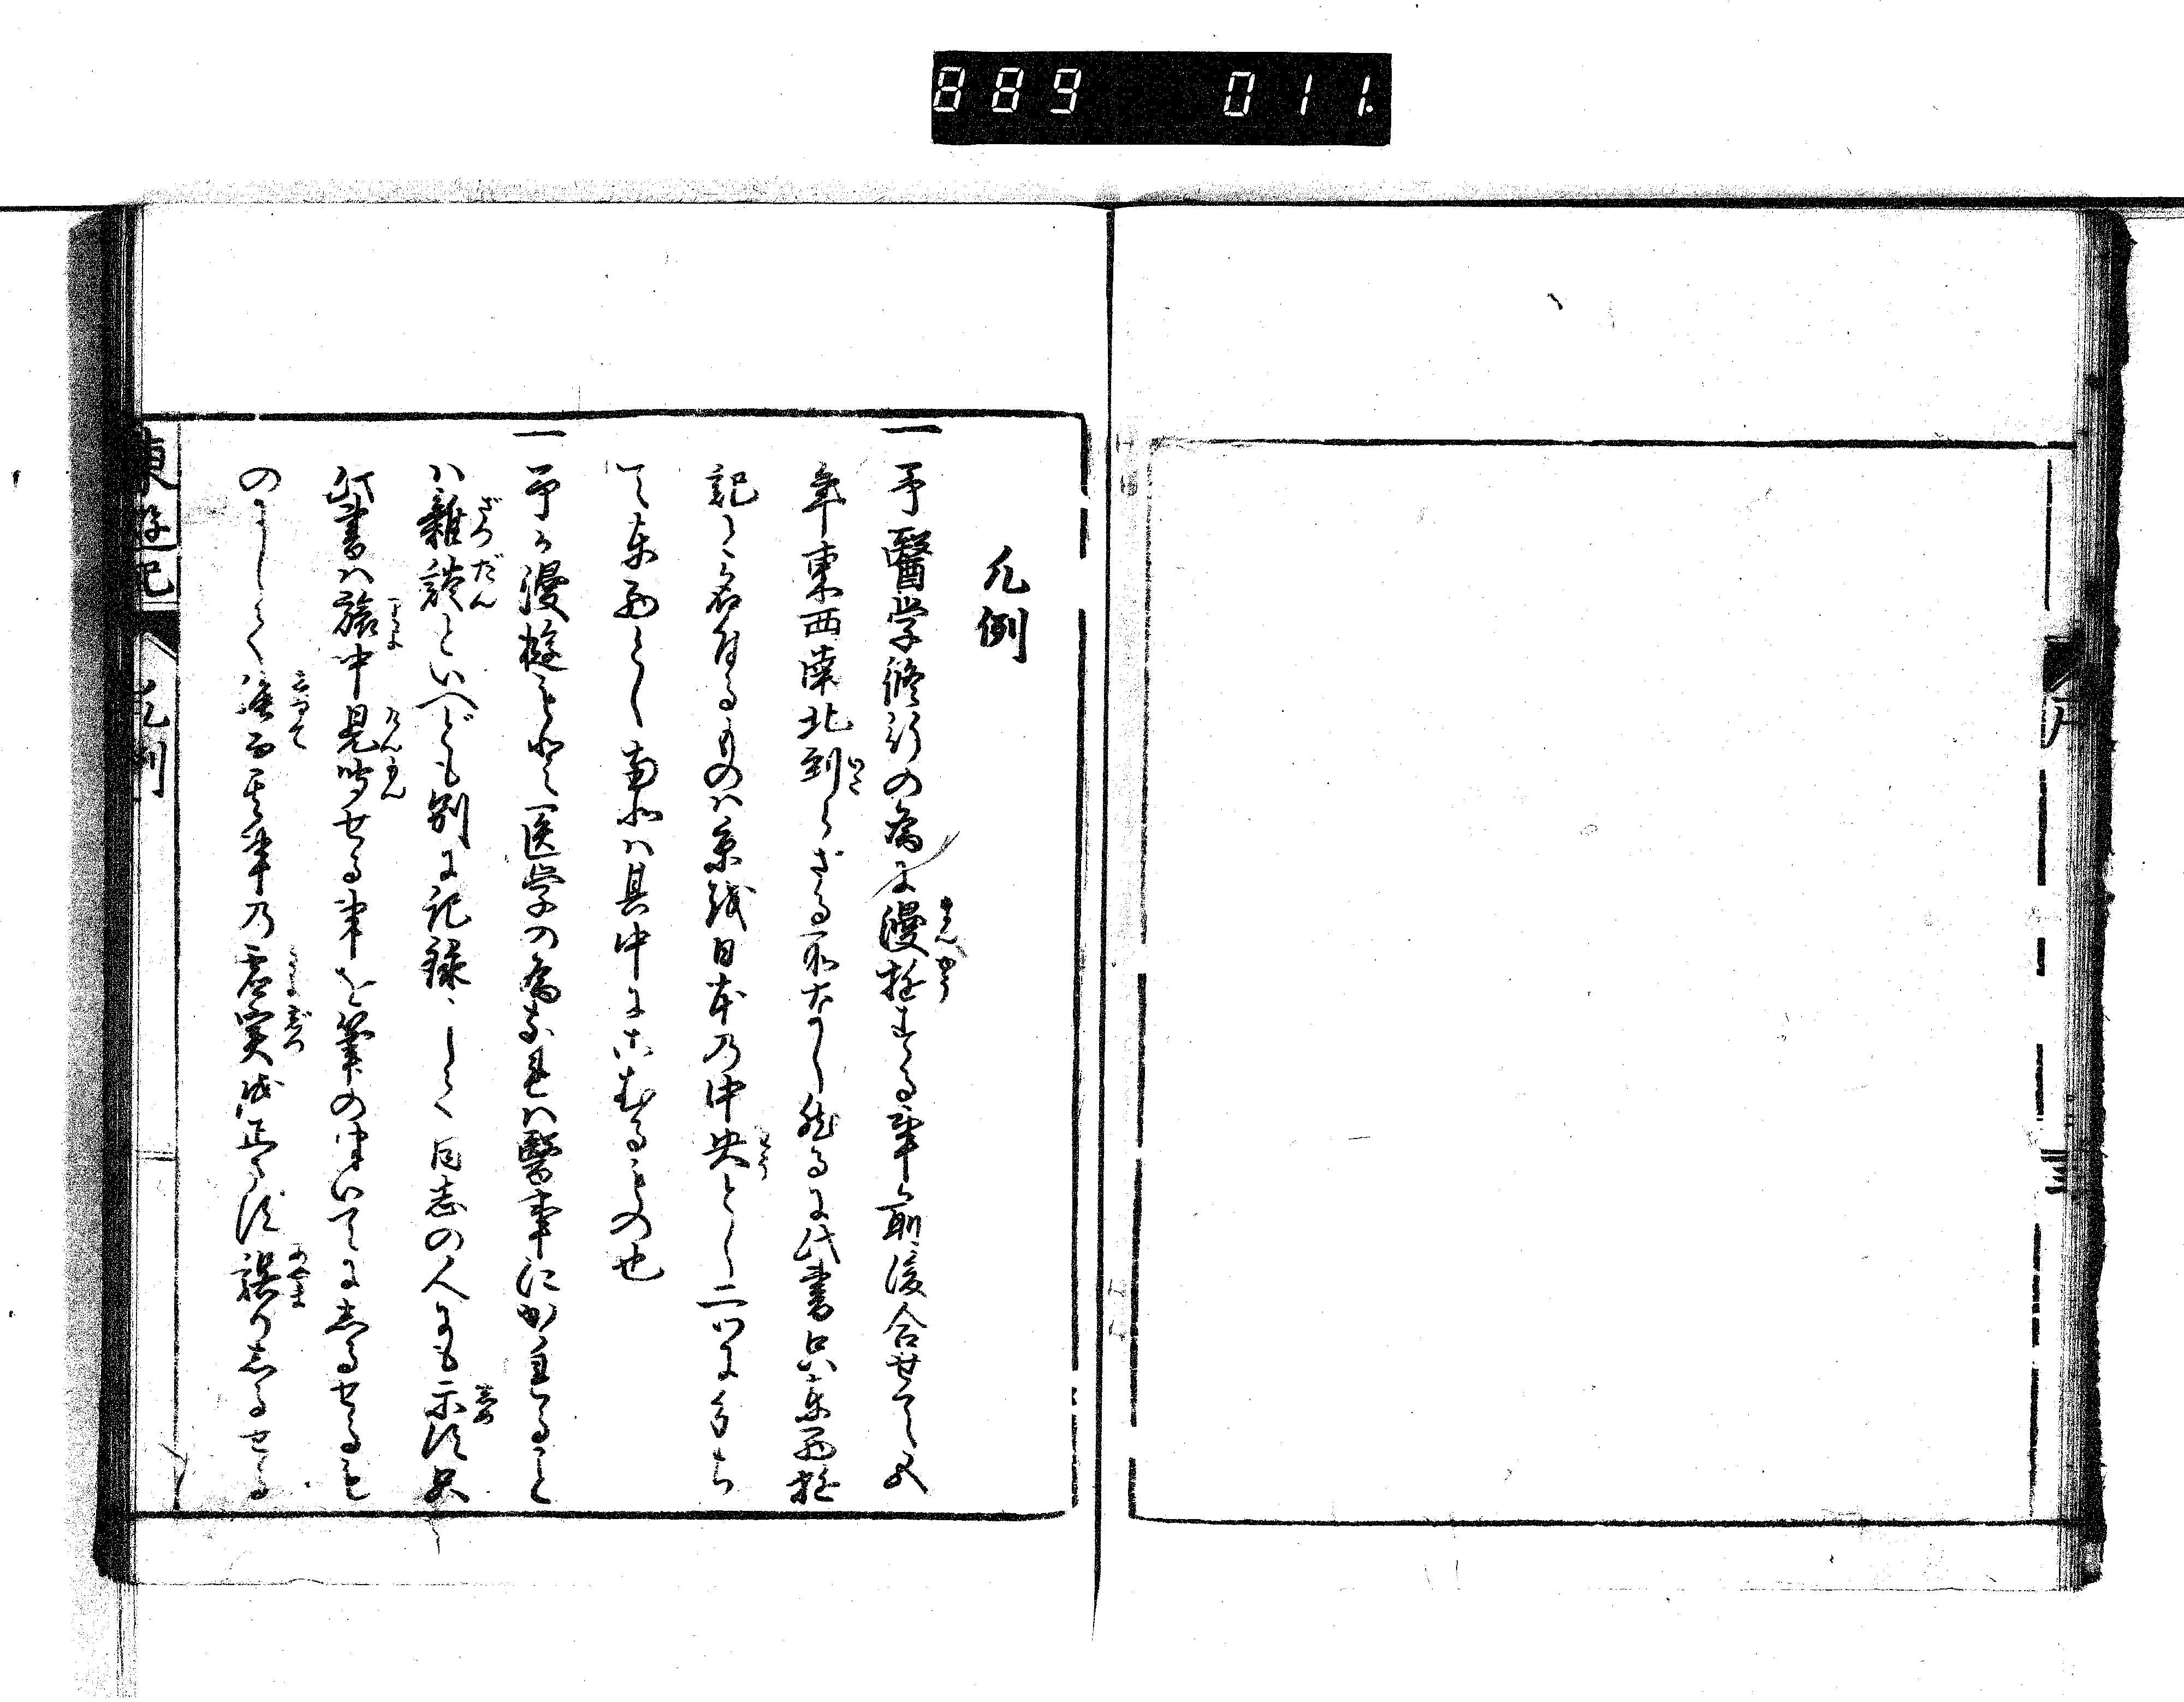 889 011.
凡例
一予醫学修行の為に漫遊する事前後合せて五
年東西南北到らざる所なし然るに此書只東西遊
記と名付るものハ京城日本乃中央とし二つに分ち
て東西とし南北ハ其中にこむるもの也
一予が漫遊もと医学の為なれハ醫事にかゝれること
ハ雑談といへども別に記録して同志の人にも示す只
此書ハ旅中見聞せる事を筆のついてにしるせるも
のにして強而其事乃虚実を正さず誤りしるせる
東遊記 凡例